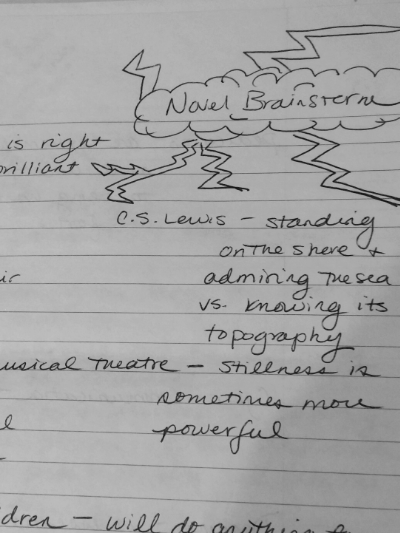 Novel Brainstorm
is right
brilliant
C.S. Lewis - standing
on the shore +
admiring the sea
vs. knowing its
topography
usical Theatre - Stillness is
sometimes more
powerful
dren - will do anything